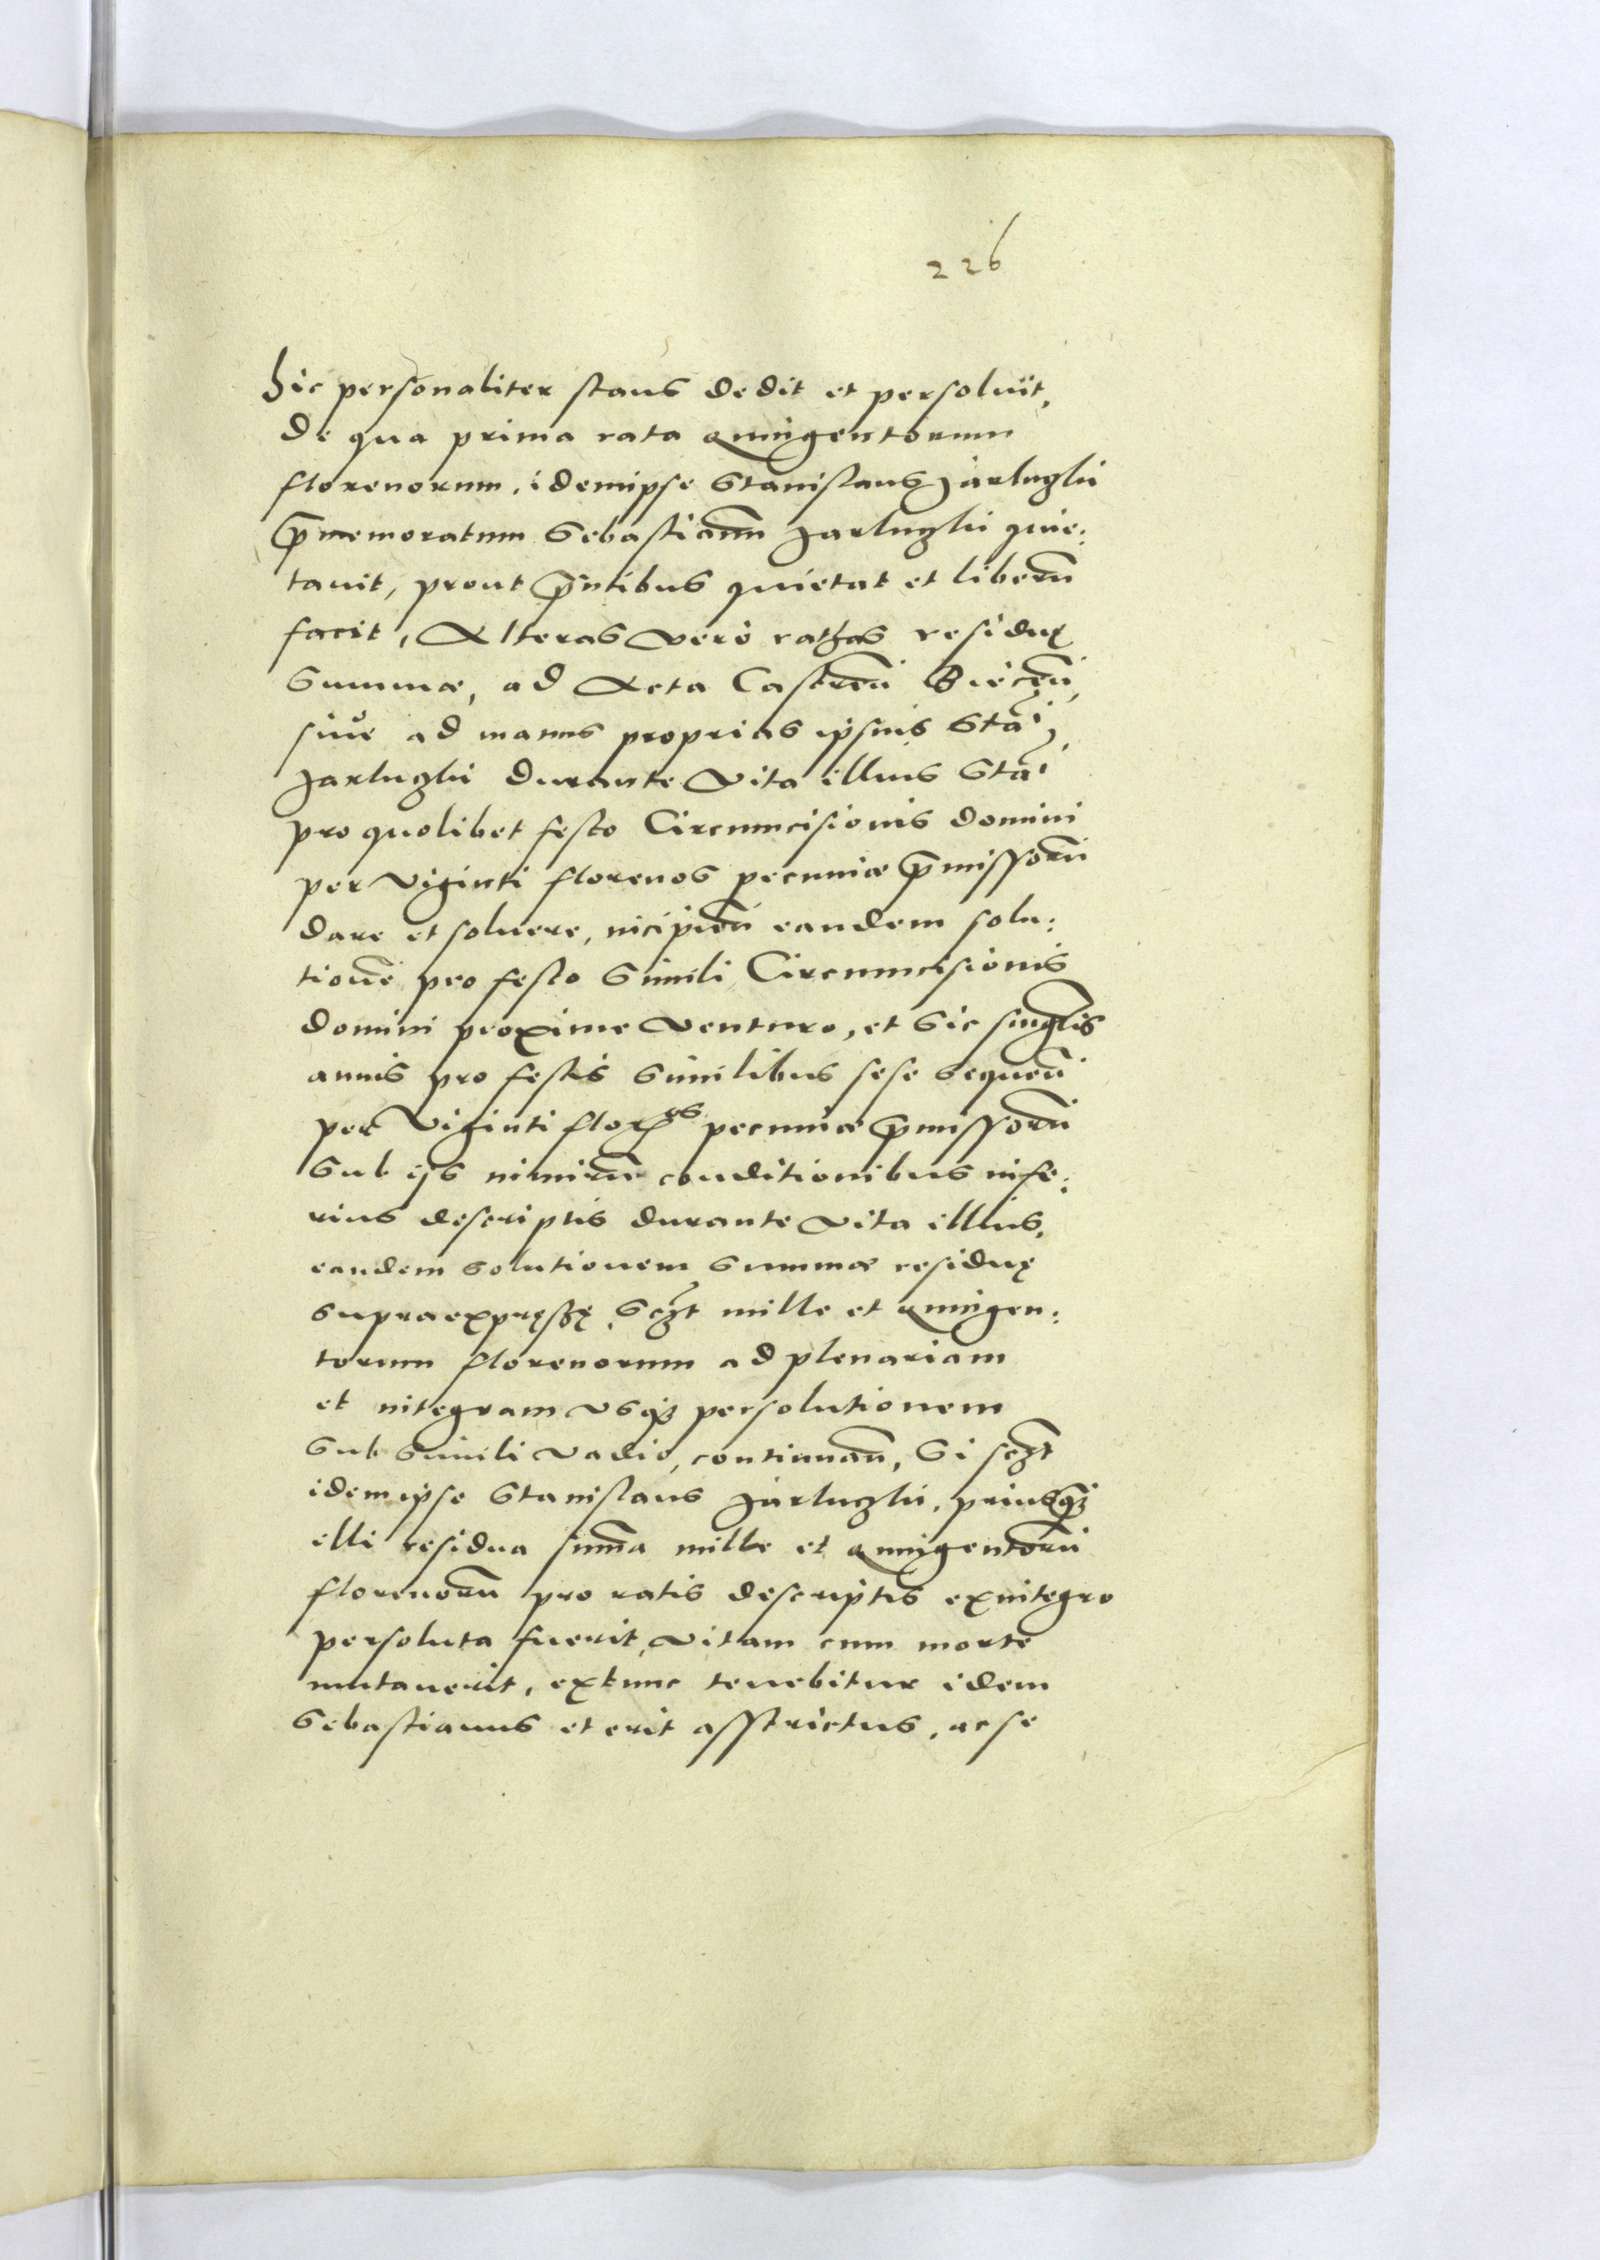 226
Hic personaliter stans dedit et persoluit,
de qua prima rata quingentorum
florenorum, idemipse Stanislaus Jarluzkii
p̄memoratum Sebastianū Jarluzkii quie:
tauit, prout p̄ntibus quietat et liberū
facit, Alteras vero rathas residuę
Summæ, ad Acta Castreñ Biecen̄,
siue ad manus proprias ipsius Stāi,
Jarluzkii durante vita illius Stāi
pro quolibet festo Circumcisionis domini
per viginti florenos pecuniæ p̄missorū
dare et soluere, incipien̄ eandem solu:
tionē pro festo Simili Circumcisionis
domini proxime venturo, et Sic singl̄is
annis pro festis Similibus sese sequen̄
per Viginti flor̄os pecuniæ p̄missorū
Sub ijs nimirū conditionibus infe:
rius descriptis durante vita illius,
eandem solutionem Summæ residuę
supraexpręssę, Sczt̄ mille et quingen:
torum florenorum ad plenariam
et integram vsqz persolutionem
Sub Simili vadio, continuan̄, Si sczt̄
idemipse Stanislaus Jarluzkii, priusqz̄
illi residua sum̄a mille et quingentorū
florenorū pro ratis descriptis exintegro
persoluta fuerit, vitam cum morte
mutauerit, extunc tenebitur idem
Sebastianus et erit asstrictus, ac se